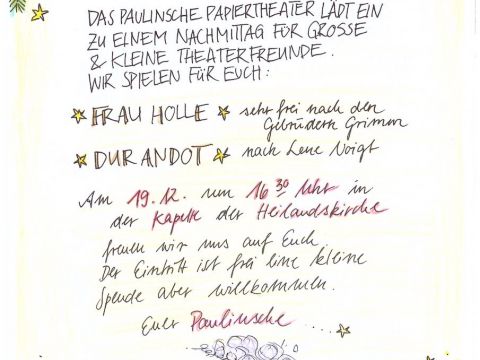 DAS PAULINSCHE PAPIERTHEATER LÄDT EIN
ZU EINEM NACHMITTAG FÜR GROSSE
& KLEINE THEATERFREUNDE.
WIR SPIELEN FÜR EUCH:
FRAU HOLLE sehr frei nach den
Gebrüdern Grimm
DURANDOT nach Lene Voigt
Am 19.12. um 16 30 Uhr in
der Kapelle der Heilandskirche
freuen wir uns auf Euch.
Der Eintritt ist frei eine kleine
Spende aber willkommen.
Euer Paulinsche ....